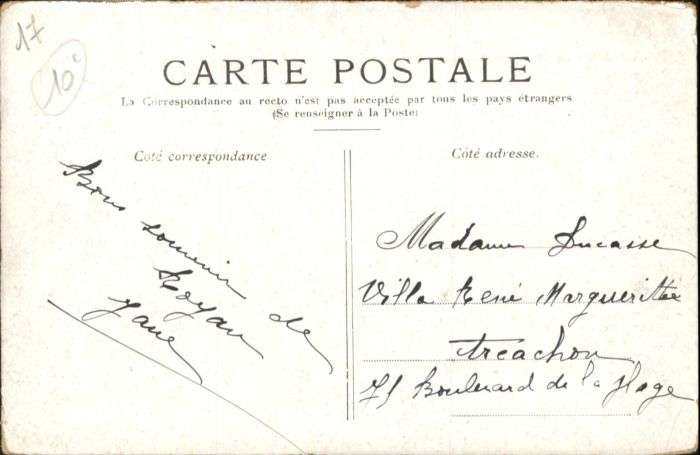 17
10c
CARTE POSTALE
La Correspondance au recto n'est pas acceptée par tous les pays étrangers
(Se renseigner à la Poste)
Côté correspondance
Bons souvenir de
Royan
Jane
Côté adresse.
Madame Ducasse
Villa René Margueritte
Arcachon
71 Boulevard de la Plage